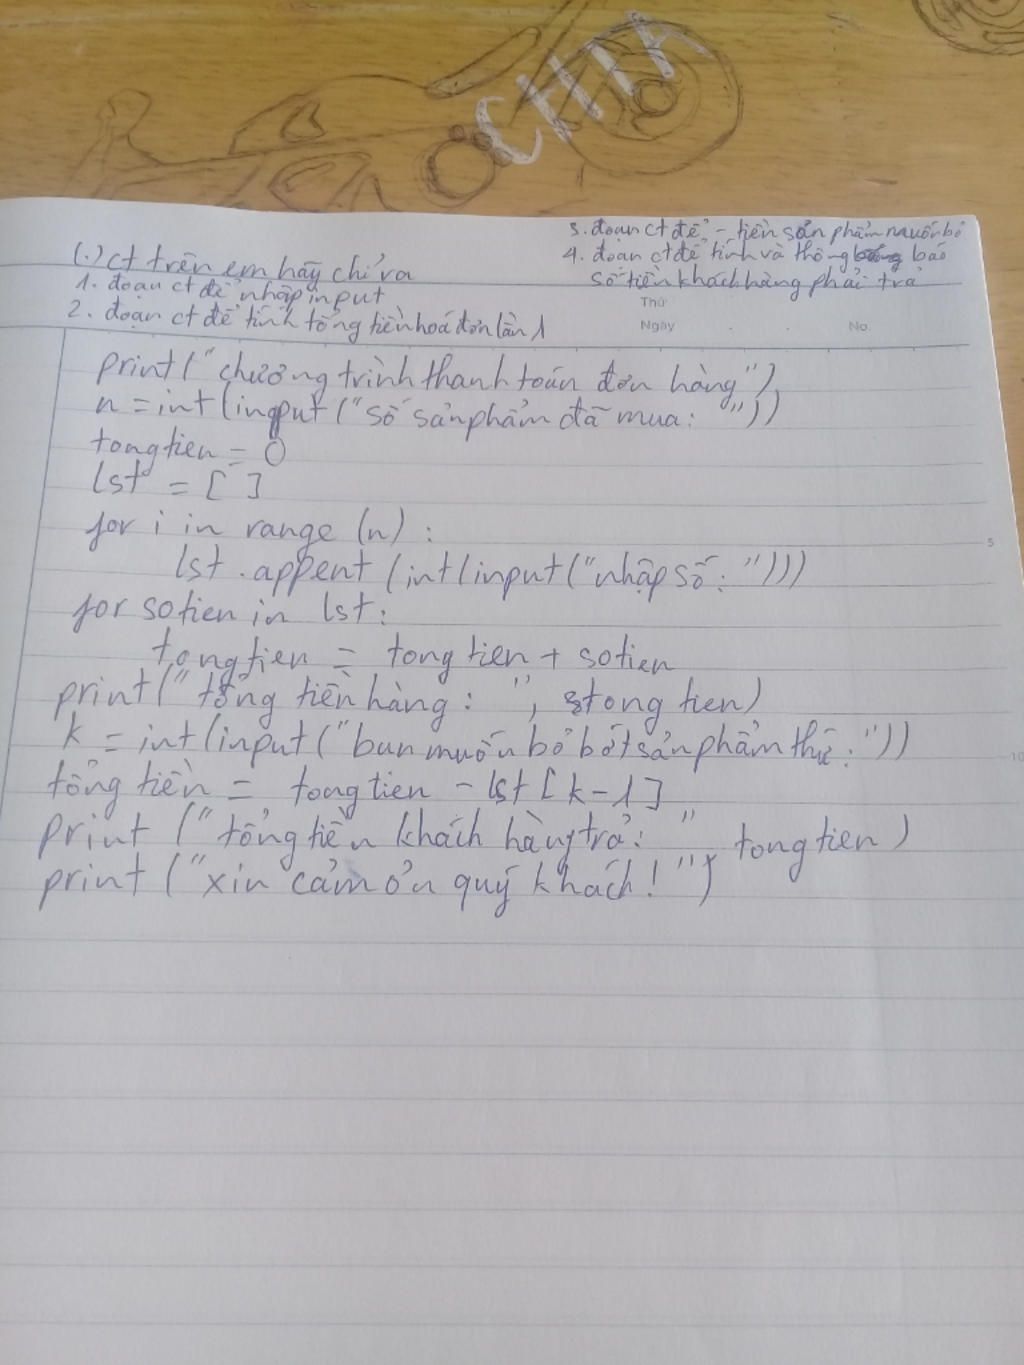 CHIA
(.) ct trên em hãy chỉ ra
1. đoạn ct để nhập input
2. đoạn ct để tính tổng tiền hoá đơn lần 1
3. đoạn ct để - tiền sản phẩm muốn bỏ
4. đoạn ct để tính và thông báo
số tiền khách hàng phải trả
Thứ
Ngày . . No.
print("chương trình thanh toán đơn hàng")
n = int(input("số sản phẩm đã mua: "))
tongtien = 0
lst = [ ]
for i in range (n) :
lst.appent (int(input("nhập số: ")))
for sotien in lst:
tongtien = tongtien + sotien
print("tổng tiền hàng: ", tongtien)
k = int(input("bạn muốn bỏ bớt sản phẩm thứ: "))
tổng tiền = tongtien - lst[k-1]
print ("tổng tiền khách hàng trả: " tongtien)
print ("xin cảm ơn quý khách! ")
5
10